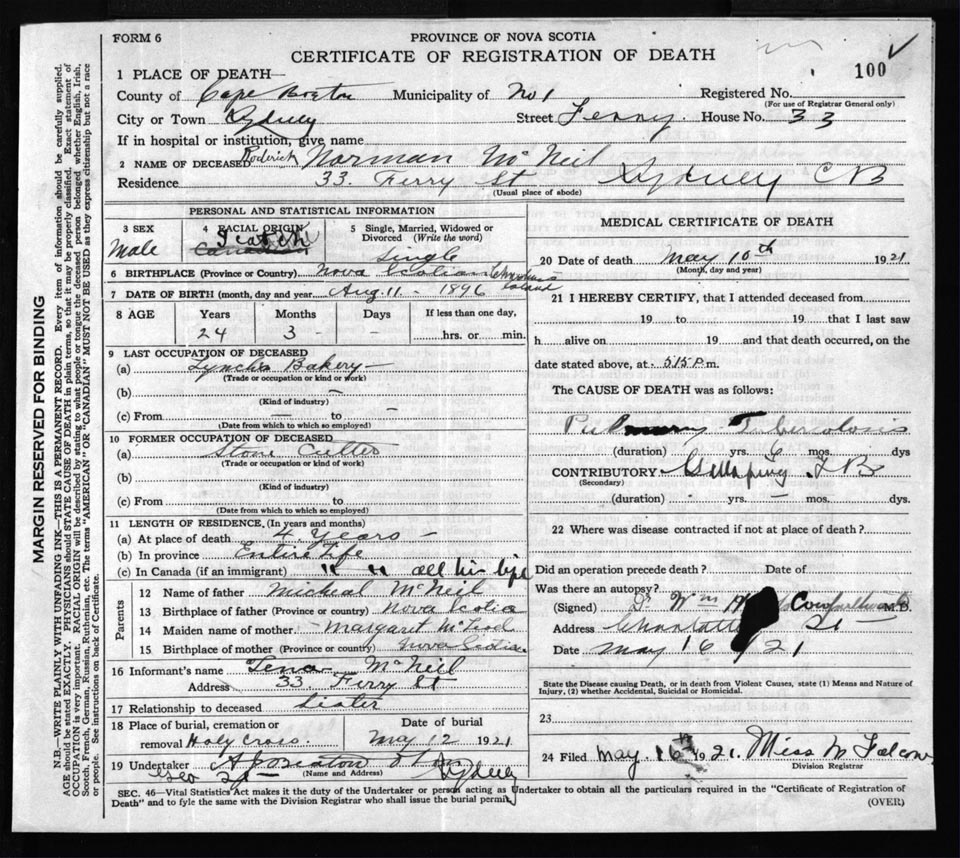 FORM 6
PROVINCE OF NOVA SCOTIA
CERTIFICATE OF REGISTRATION OF DEATH
100
1 PLACE OF DEATH—
County of Cape Breton Municipality of No 1 Registered No.
(For use of Registrar General only)
City or Town Sydney Street Ferry. House No. 33
If in hospital or institution, give name
2 NAME OF DECEASED Roderick Norman McNeil
Residence 33. Ferry St Sydney CB
(Usual place of abode)
PERSONAL AND STATISTICAL INFORMATION
3 SEX Male
4 RACIAL ORIGIN Scotch Canadian
5 Single, Married, Widowed or Divorced (Write the word) Single
6 BIRTHPLACE (Province or Country) Nova Scotian Christmas Island
7 DATE OF BIRTH (month, day and year) Aug. 11 - 1896
8 AGE Years Months Days If less than one day,
24 3 - - hrs. or min.
9 LAST OCCUPATION OF DECEASED
(a) Lynches Bakery
(Trade or occupation or kind of work)
(b)
(Kind of industry)
(c) From — to —
(Date from which to which so employed)
10 FORMER OCCUPATION OF DECEASED
(a) Stone Cutter
(Trade or occupation or kind of work)
(b)
(Kind of industry)
(c) From — to
(Date from which to which so employed)
11 LENGTH OF RESIDENCE, (In years and months)
(a) At place of death 4 Years -
(b) In province Entire Life
(c) In Canada (if an immigrant) " " all his life
Parents
12 Name of father Micheal McNeil
13 Birthplace of father (Province or country) Nova Scotia
14 Maiden name of mother Margaret McLeod
15 Birthplace of mother (Province or country) Nova Scotia
16 Informant's name Lena McNeil
Address 33 Ferry St
17 Relationship to deceased Sister
18 Place of burial, cremation or removal Holy Cross Date of burial May 12 1921
19 Undertaker Sydney
(Name and Address)
Geo St
MEDICAL CERTIFICATE OF DEATH
20 Date of death May 10th 1921
(Month, day and year)
21 I HEREBY CERTIFY, that I attended deceased from
19 to 19 that I last saw
h alive on 19 and that death occurred, on the
date stated above, at 5.15 P. m.
The CAUSE OF DEATH was as follows:
Pulmonary Tuberculosis
(duration) yrs. 6 mos. dys
CONTRIBUTORY Galloping TB
(Secondary)
(duration) - yrs. - mos. dys.
22 Where was disease contracted if not at place of death?
Did an operation precede death? Date of
Was there an autopsy?
(Signed) Dr Wm M.D.
Address Charlotte St
Date May 16 /21
State the Disease causing Death, or in death from Violent Causes, state (1) Means and Nature of Injury, (2) whether Accidental, Suicidal or Homicidal.
23
24 Filed May. 16th 1921. Miss M Falconer
Division Registrar
SEC. 46—Vital Statistics Act makes it the duty of the Undertaker or person acting as Undertaker to obtain all the particulars required in the "Certificate of Registration of
Death" and to fyle the same with the Division Registrar who shall issue the burial permit.
(OVER)
MARGIN RESERVED FOR BINDING
N.B.—WRITE PLAINLY WITH UNFADING INK—THIS IS A PERMANENT RECORD. Every item of information should be carefully supplied.
AGE should be stated EXACTLY. PHYSICIANS should STATE CAUSE OF DEATH in plain terms, so that it may be properly classified. Exact statement of
OCCUPATION is very important. RACIAL ORIGIN will be described by stating to what people or tongue the deceased person belonged whether English, Irish,
Scotch, French, German, Russian, Ruthenian, etc. The terms "AMERICAN" OR "CANADIAN" MUST NOT BE USED as they express citizenship but not a race
or people. See instructions on back of Certificate.